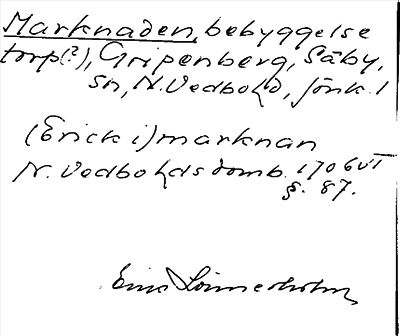 Marknaden, bebyggelse
torp(?), Gripenberg, Säby,
sn, N. Vedbo hd, Jönk. l
(Erick i) marknan
N. Vedbo hds domb. 1706 VT
§. 87.
Eric Linnerholm